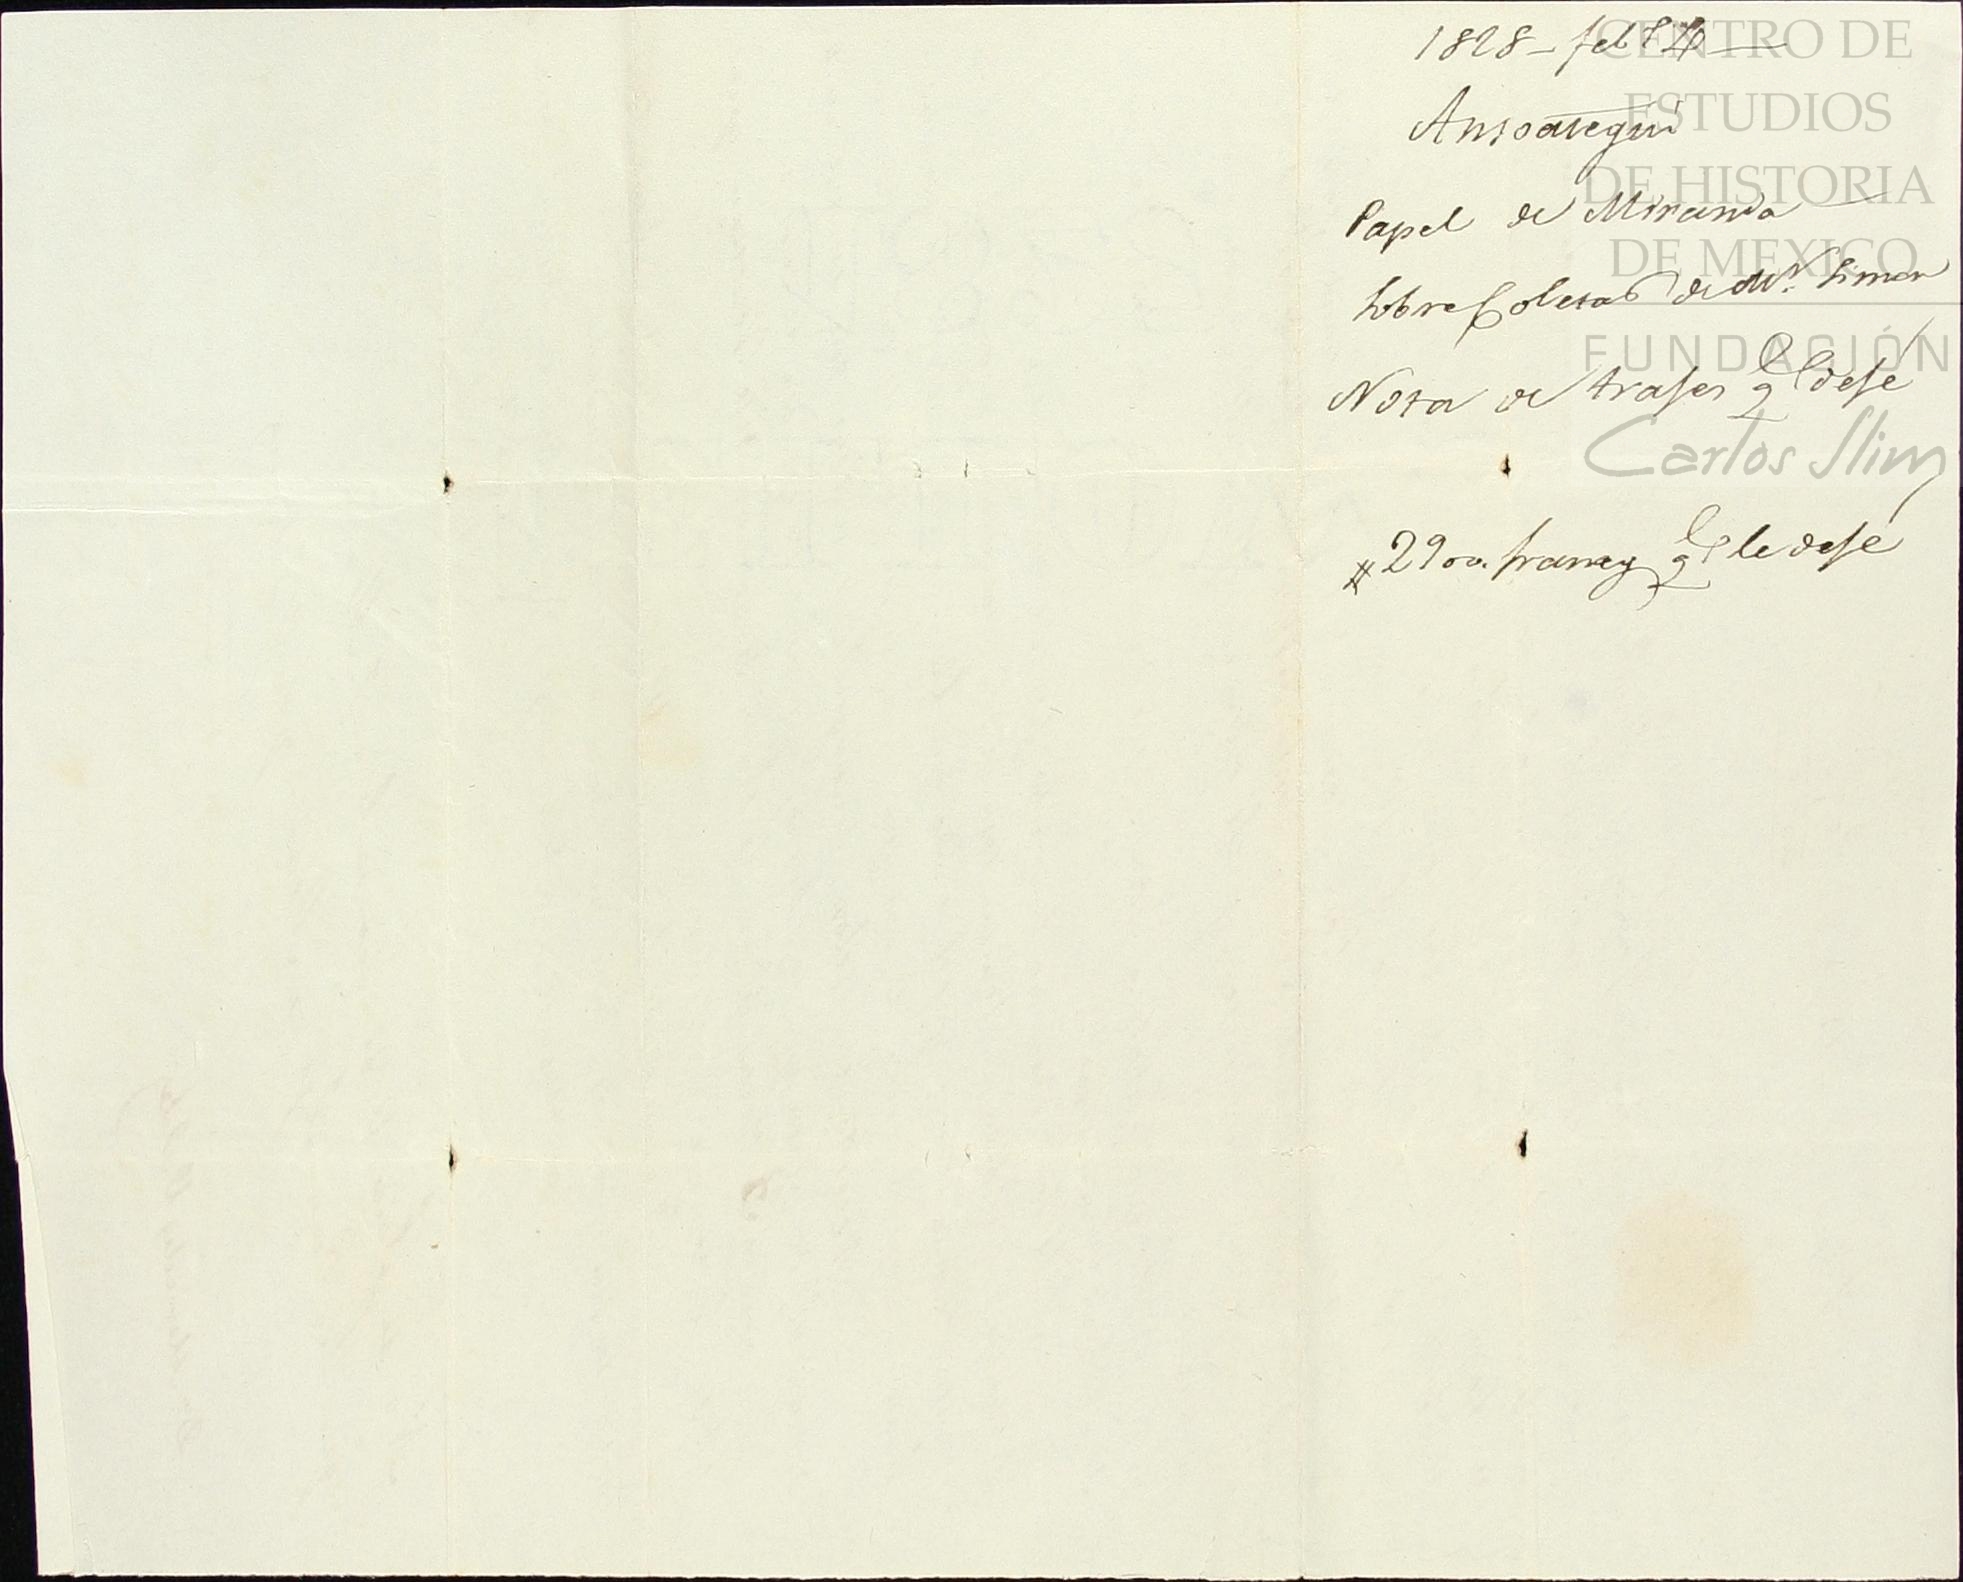 1828 - feb.º
Ansoategui
Papel de Miranda
sobre Coletas de Mr. Simon
Nota de trastes q.e desé
# 2900. francos q.e le desé
CENTRO DE
ESTUDIOS
DE HISTORIA
DE MEXICO
FUNDACIÓN
Carlos Slim